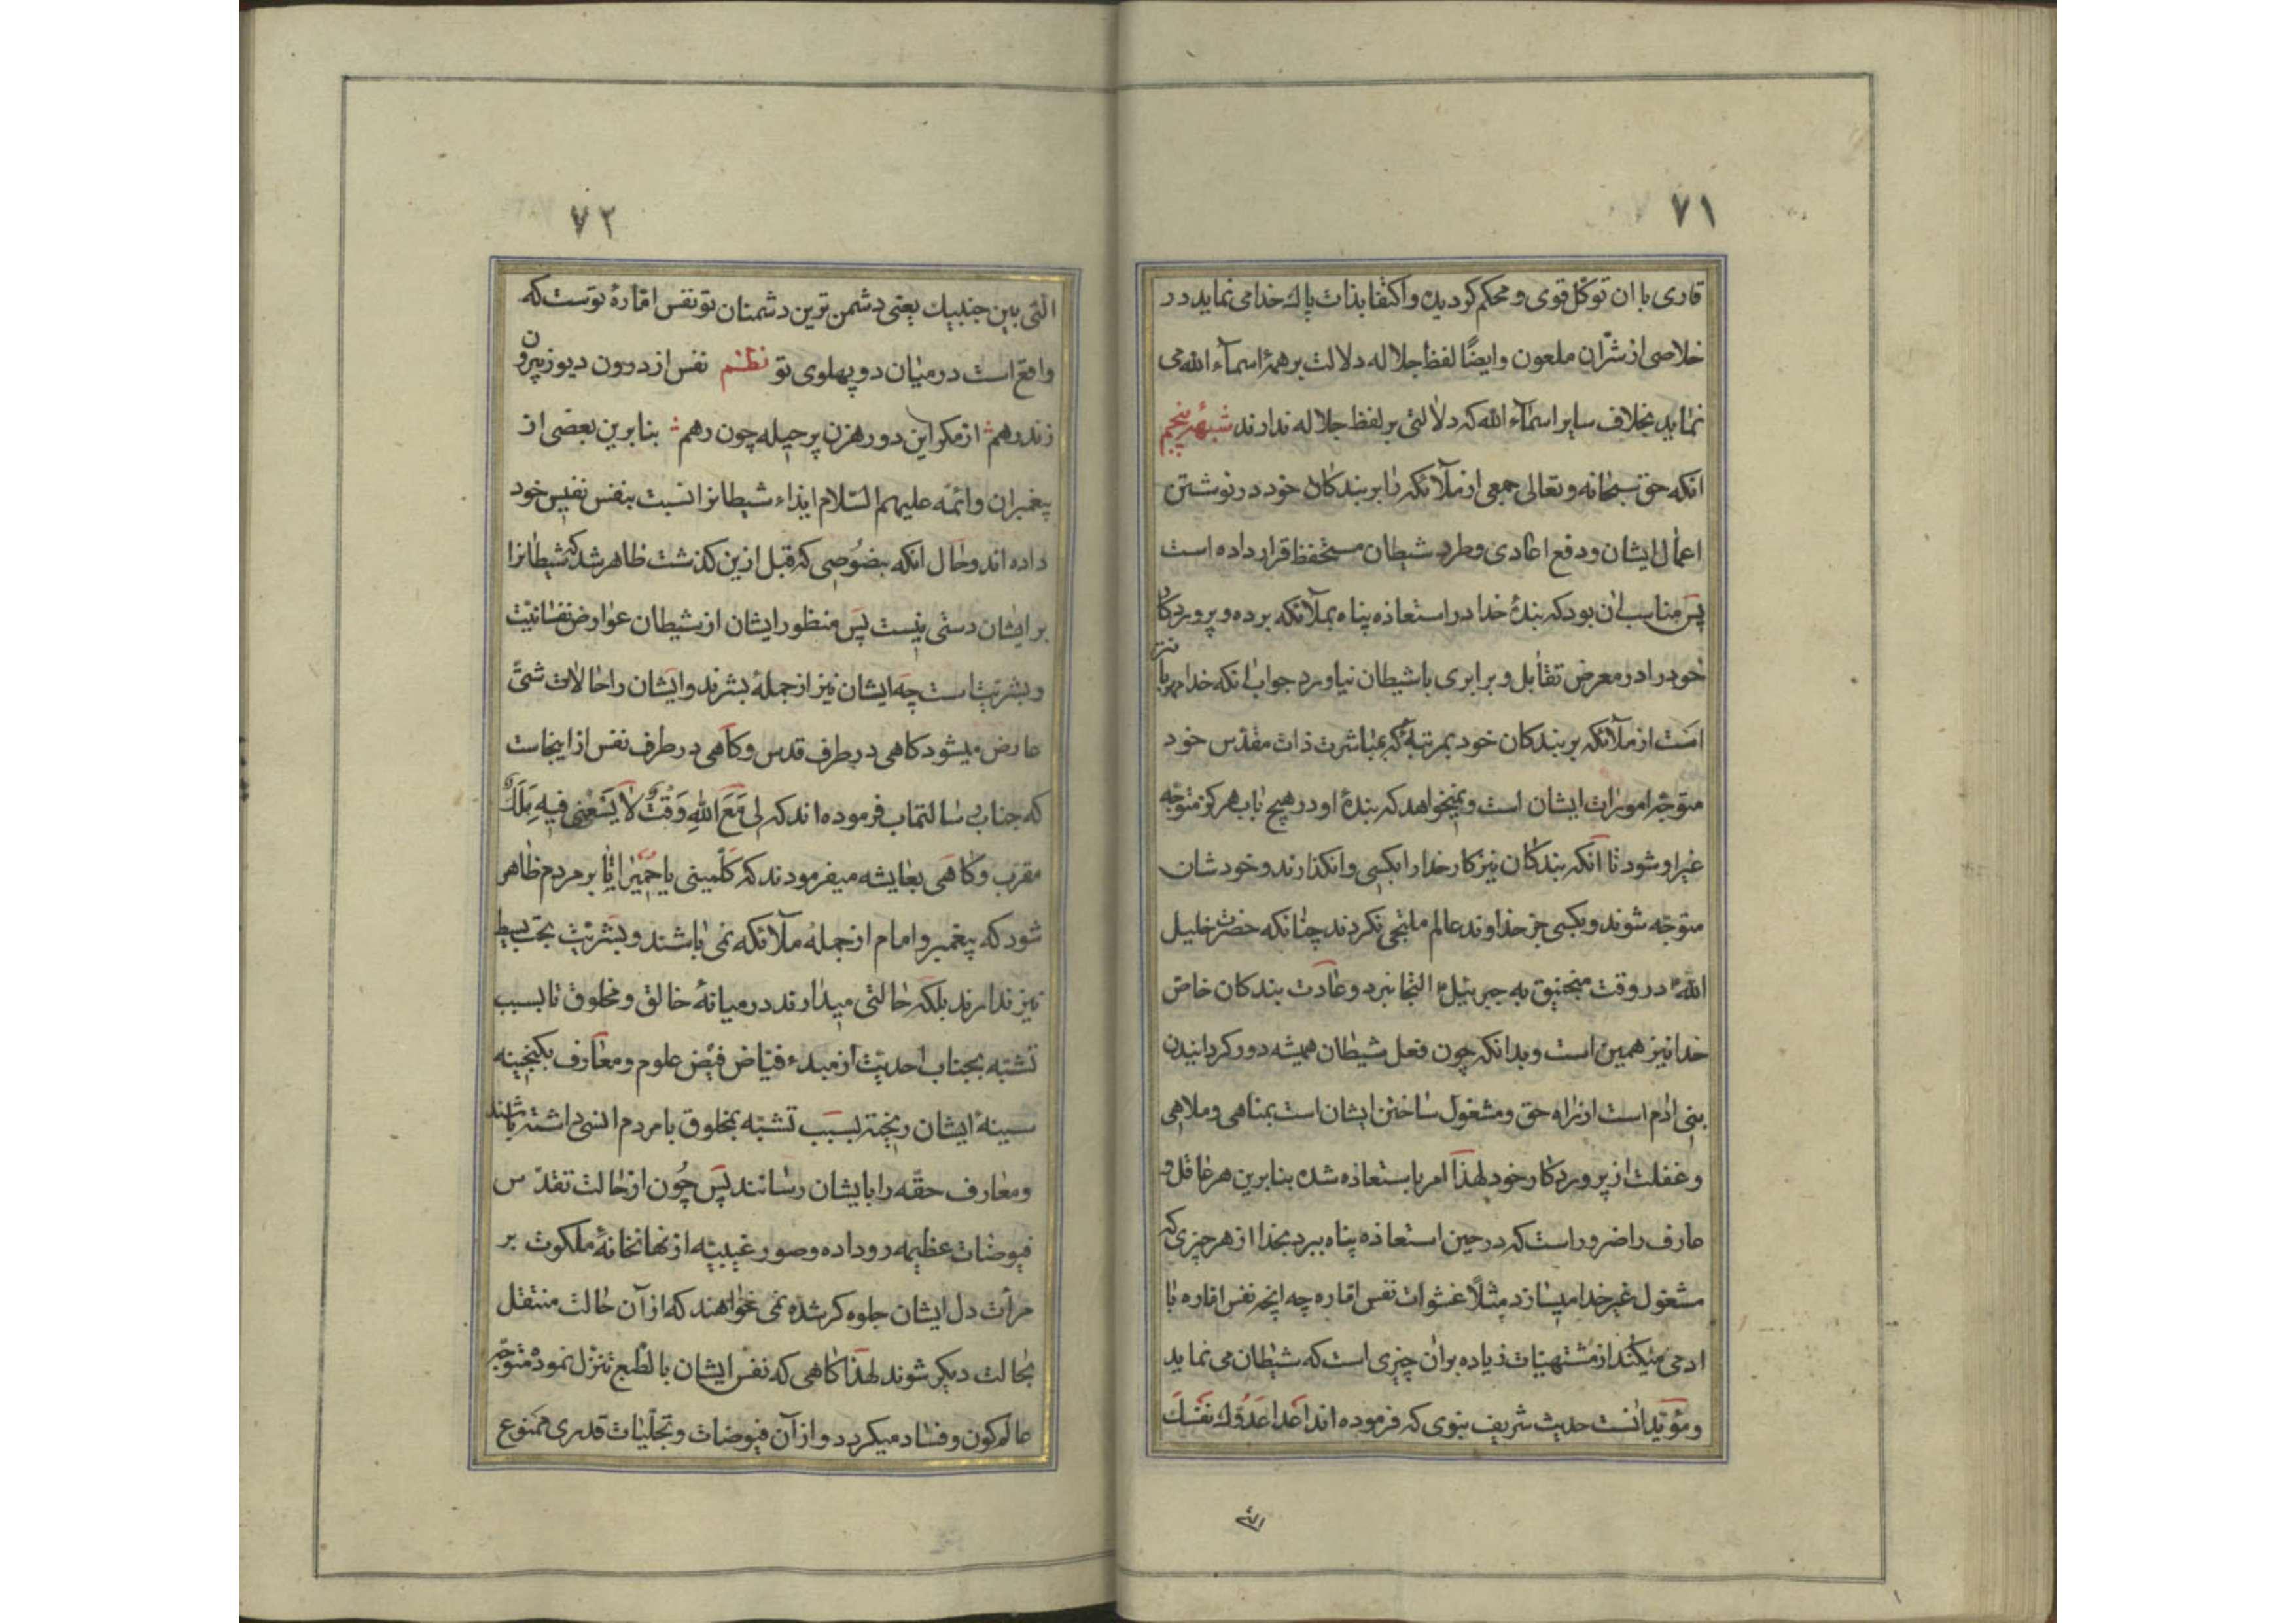 ۷۱
قاری با ان توکل قوی و محکم کردیده و اکتفا بذات پاك خدا می نماید در
خلاصی از شرّ ان ملعون وایضًا لفظ جلاله دلالت بر همهٔ اسمآء الله می
نماید بخلاف سایر اسمآء الله که دلالتی بر لفظ جلاله ندارند شبههٔ پنجم
انکه حق سبحانه و تعالی جمعی از ملآئکه را بر بندکان خود در نوشتن
اعمال ایشان و دفع اعادی و طرد شیطان مستحفظ قرار داده است
پس مناسب ان بود که بندهٔ خدا در استعاذه پناه بملآئکه برده و پروردکار
خود را در معرض تقابل و برابری با شیطان نیاورد جواب انکه خدا مهربانتر
است از ملآئکه بر بندکان خود بمرتبهٔ که بمباشرت ذات مقدّس خود
متوجّه امورات ایشان است و نمیخواهد که بندهٔ او در هیچ باب هرکز متوجّه
غیر او شود تا انکه بندکان نیز کار خدا را بکسی وانکذارند و خودشان
متوجّه شوند و بکسی جز خداوند عالم ملتجی نکردند چنانکه حضرت خلیل
الله در وقت منجنیق به جبرئیل التجا نبرد و عادت بندکان خاص
خدا نیز همین است و بدانکه چون فعل شیطان همیشه دور کردانیدن
بنی ادم است از راه حق و مشغول ساختن ایشان است بمناهی و ملاهی
و غفلت از پروردکار خود لهذا امر باستعاذه شده بنابرین هر عاقل و
عارف را ضرور است که در حین استعاذه پناه ببرد بخدا از هر چیزی که
مشغول غیر خدا میسازد مثلًا غشوات نفس امّاره چه انچه نفس امّاره با
ادمی میکند از مشتهیات زیاده بران چیزی است که شیطان می نماید
و مؤیّد انست حدیث شریف نبوی که فرموده اند اعدا عدوّك نفسك
التی
۷۲
التی بین جنبیك یعنی دشمن ترین دشمنان تو نفس امّارهٔ توست که
واقع است در میان دو پهلوی تو نظم نفس از درون دیو ز بیرون
زند رهم از مکر این دو رهزن پر حیله چون رهم بنابرین بعضی از
پیغمبران و ائمّه علیهم السّلام ایذاء شیطانرا نسبت بنفس نفیس خود
داده اند و حال انکه بنصوصی که قبل ازین کذشت ظاهر شد که شیطانرا
بر ایشان دستی نیست پس منظور ایشان از شیطان عوارض نفسانیّت
و بشریّت است چه ایشان نیز از جملهٔ بشرند و ایشان را حالات شتّی
عارض میشود کاهی در طرف قدس و کاهی در طرف نفس از اینجاست
که جناب رسالتماب فرموده اند که لِی مَعَ اللّٰهِ وَقْتٌ لا یَسَعُنی فیهِ مَلَكٌ
مقرّب و کاهی بعایشه میفرمودند که کَلّمینی یا حُمَیْرا تا بر مردم ظاهر
شود که پیغمبر و امام از جملهٔ ملآئکه نمی باشند و بشریّت بحت بسیط
نیز ندارند بلکه حالتی میدارند در میانهٔ خالق و مخلوق تا بسبب
تشبّه بجناب احدیّت از مبدء فیّاض فیض علوم و معارف بکنجینه
سینهٔ ایشان ریخته بسبب تشبّه بمخلوق با مردم انسی داشته باشند
و معارف حقّه را بایشان رسانند پس چون از حالت تقدّس
فیوضات عظیمه رو داده و صور غیبیّه از نهانخانهٔ ملکوت بر
مرأت دل ایشان جلوه کر شده نمی خواهند که از آن حالت منتقل
بحالت دیکر شوند لهذا کاهی که نفس ایشان بالطّبع تنزّل نموده متوجّه
عالم کون و فساد میکردد و از آن فیوضات و تجلّیات قدری ممنوع